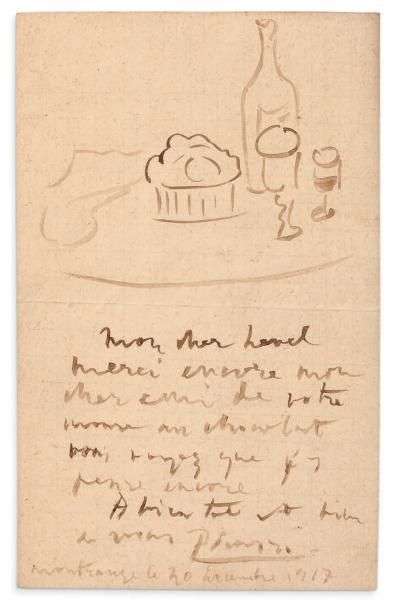 mon cher Level
merci encore mon
cher ami de votre
mousse au chocolat
vous voyez que j'y
pense encore
A bientot et bien
a vous Picasso
montrouge le decembre 1917